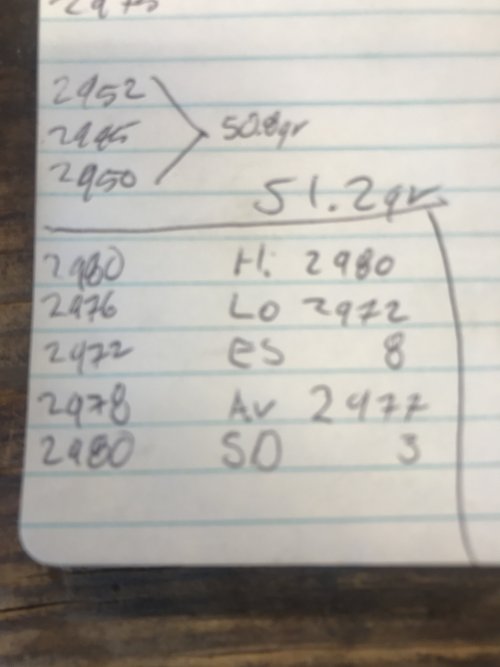 2975
2952
50.8gr
2950
51.2gr
2980 Hi 2980
2976 Lo 2972
2972 es 8
2978 Av 2977
2980 SD 3